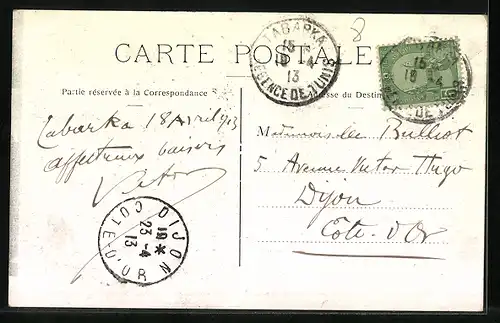 8
CARTE POSTALE
TABARKA
15
18 -4
13
REGENCE DE TUNIS
Partie réservée à la Correspondance
Adresse du Destin
Tabarka 18 Avril 1913
affectueux baisers
Mademoiselle Bulliot
5 Avenue Victor Hugo
Dijon
Côte-d'Or
DIJON
19 *
23 -4
13
COTE-D'OR